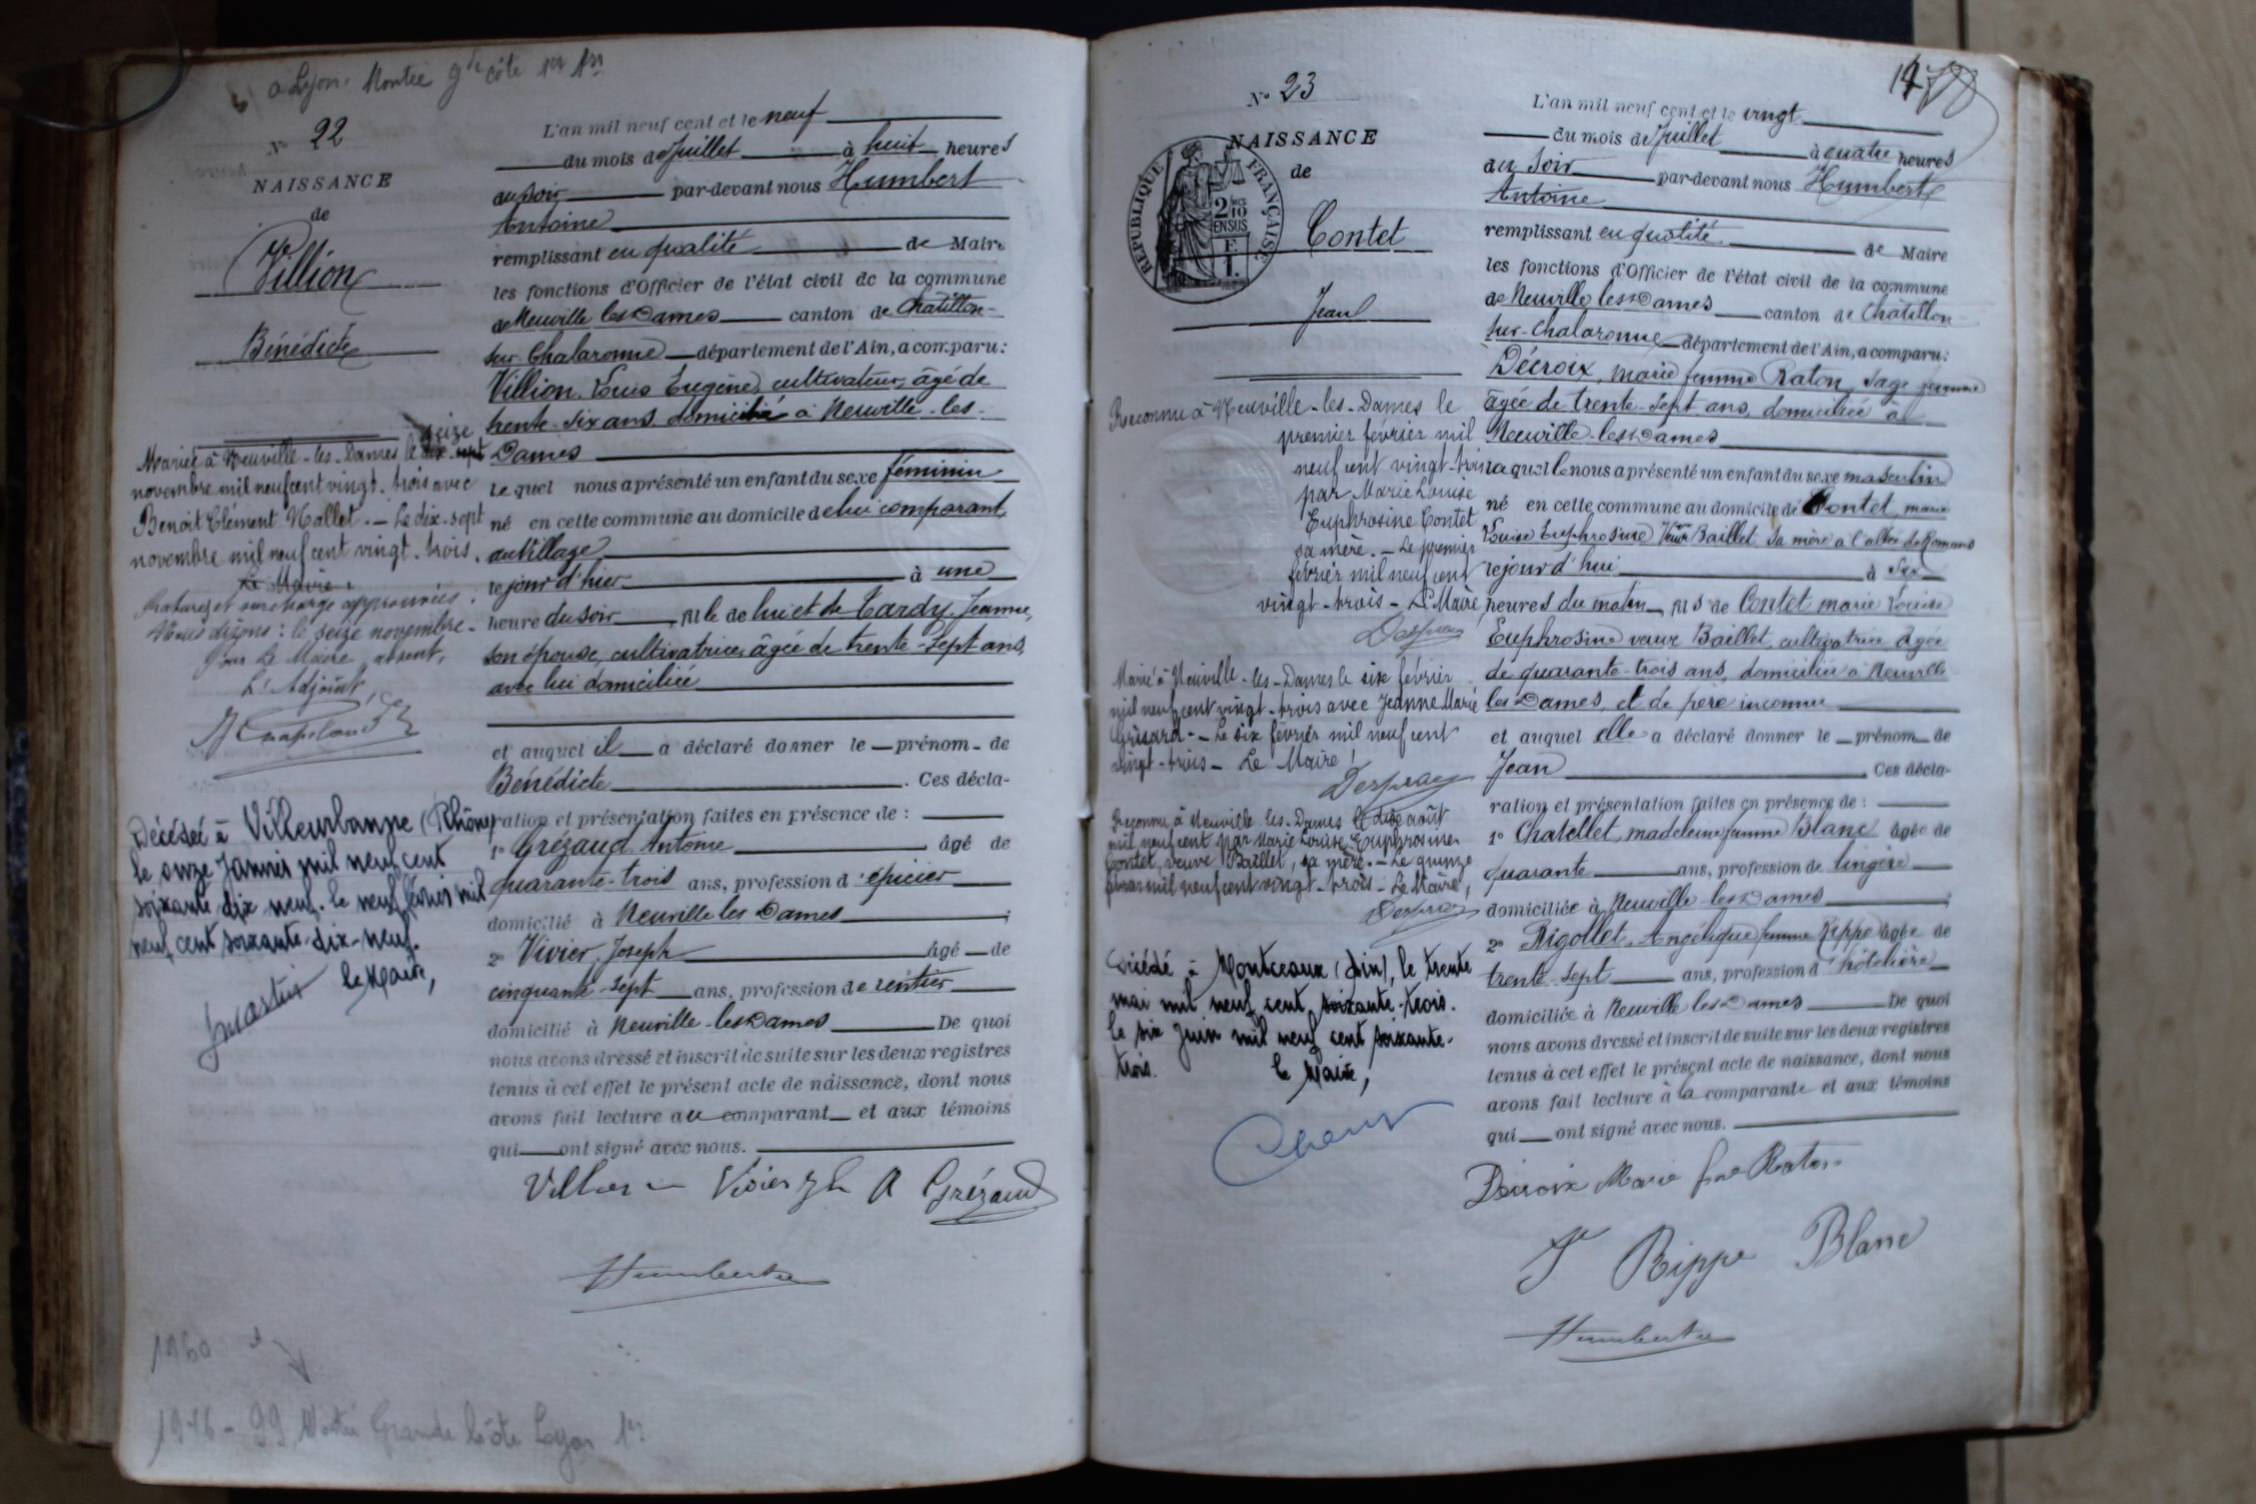 a Lyon. Montée gde côte 1er
N° 22
NAISSANCE
de
Villion
Bénédicte
Mariée à Neuville-les-Dames le dix-sept seize
novembre mil neuf cent vingt-trois avec
Benoit Clément Nallet. — Le dix-sept
novembre mil neuf cent vingt-trois.
Le Maire,
Rature et surcharge approuvées.
Nous disons : le seize novembre.
Pour Le Maire absent,
L'Adjoint,
Décédée à Villeurbanne (Rhône)
le onze Janvier mil neuf cent
soixante dix neuf. le neuf février mil
neuf cent soixante-dix-neuf.
le Maire,
L'an mil neuf cent et le neuf
du mois de Juillet à huit heures
du soir par-devant nous Humbert
Antoine
remplissant en qualité de Maire
les fonctions d'Officier de l'état civil de la commune
de Neuville les Dames canton de Chatillon-
sur-Chalaronne département de l'Ain, a comparu :
Villion, Louis Eugène, cultivateur, âgé de
trente-six ans domicilié à Neuville-les-
Dames
Lequel nous a présenté un enfant du sexe féminin
né en cette commune au domicile de lui comparant,
au Village
le jour d'hier à une
heure du soir, fille de lui et de Tardy, Jeanne,
son épouse, cultivatrice, âgée de trente-sept ans,
avec lui domiciliée
et auquel il a déclaré donner le prénom de
Bénédicte. Ces décla-
ration et présentation faites en présence de :
1° Grézaud, Antoine âgé de
quarante-trois ans, profession d'épicier
domicilié à Neuville les Dames ;
2° Vivier, Joseph âgé de
cinquante-sept ans, profession de rentier
domicilié à Neuville-les-Dames De quoi
nous avons dressé et inscrit de suite sur les deux registres
tenus à cet effet le présent acte de naissance, dont nous
avons fait lecture au comparant et aux témoins
qui ont signé avec nous.
Villion Vivier Jh A Grézaud
Humbert
1960
1976 - 99 Montée Grande Côte Lyon 1er
N° 23
NAISSANCE
de
RÉPUBLIQUE FRANÇAISE
2/10 EN SUS
Contet
Jean
Reconnu à Neuville-les-Dames le
premier février mil
neuf cent vingt-trois
par Marie Louise
Euphrosine Contet
sa mère. — Le premier
février mil neuf cent
vingt-trois — Le Maire,
Marié à Neuville-les-Dames le six février
mil neuf cent vingt-trois avec Jeanne Marie
Grisard. — Le six février mil neuf cent
vingt-trois — Le Maire,
Reconnu à Neuville les-Dames le dix août
mil neuf cent par Marie Louise Euphrosine
Contet, veuve Baillet, sa mère. — Le quinze
mil neuf cent vingt-trois — Le Maire,
Décédé à Montceaux (Ain), le trente
mai mil neuf cent soixante-trois.
le six Juin mil neuf cent soixante-
trois. le Maire,
L'an mil neuf cent et le vingt
du mois de Juillet à quatre heures
du soir par-devant nous Humbert
Antoine
remplissant en qualité de Maire
les fonctions d'Officier de l'état civil de la commune
de Neuville les Dames canton de Châtillon-
sur-Chalaronne département de l'Ain, a comparu :
Décroix, marie femme Raton, sage femme
âgée de trente-sept ans, domiciliée à
Neuville-les-Dames
laquelle nous a présenté un enfant du sexe masculin
né en cette commune au domicile de Contet, marie
Louise Euphrosine Veuve Baillet, sa mère a l'allée de Romans
ce jour d'hui à six
heures du matin, fils de Contet marie Louise
Euphrosine veuve Baillet, cultivatrice âgée
de quarante-trois ans, domiciliée à Neuville
les Dames, et de père inconnu
et auquel elle a déclaré donner le prénom de
Jean. Ces décla-
ration et présentation faites en présence de :
1° Chatellet, madeleine femme Blanc âgée de
quarante ans, profession de lingère
domiciliée à Neuville-les-Dames ;
2° Rigollet, Angélique femme Rippe âgée de
trente-sept ans, profession d'hôtelière
domiciliée à Neuville les Dames De quoi
nous avons dressé et inscrit de suite sur les deux registres
tenus à cet effet le présent acte de naissance, dont nous
avons fait lecture à la comparante et aux témoins
qui ont signé avec nous.
Décroix Marie fme Raton
Fe Rippe Blanc
Humbert